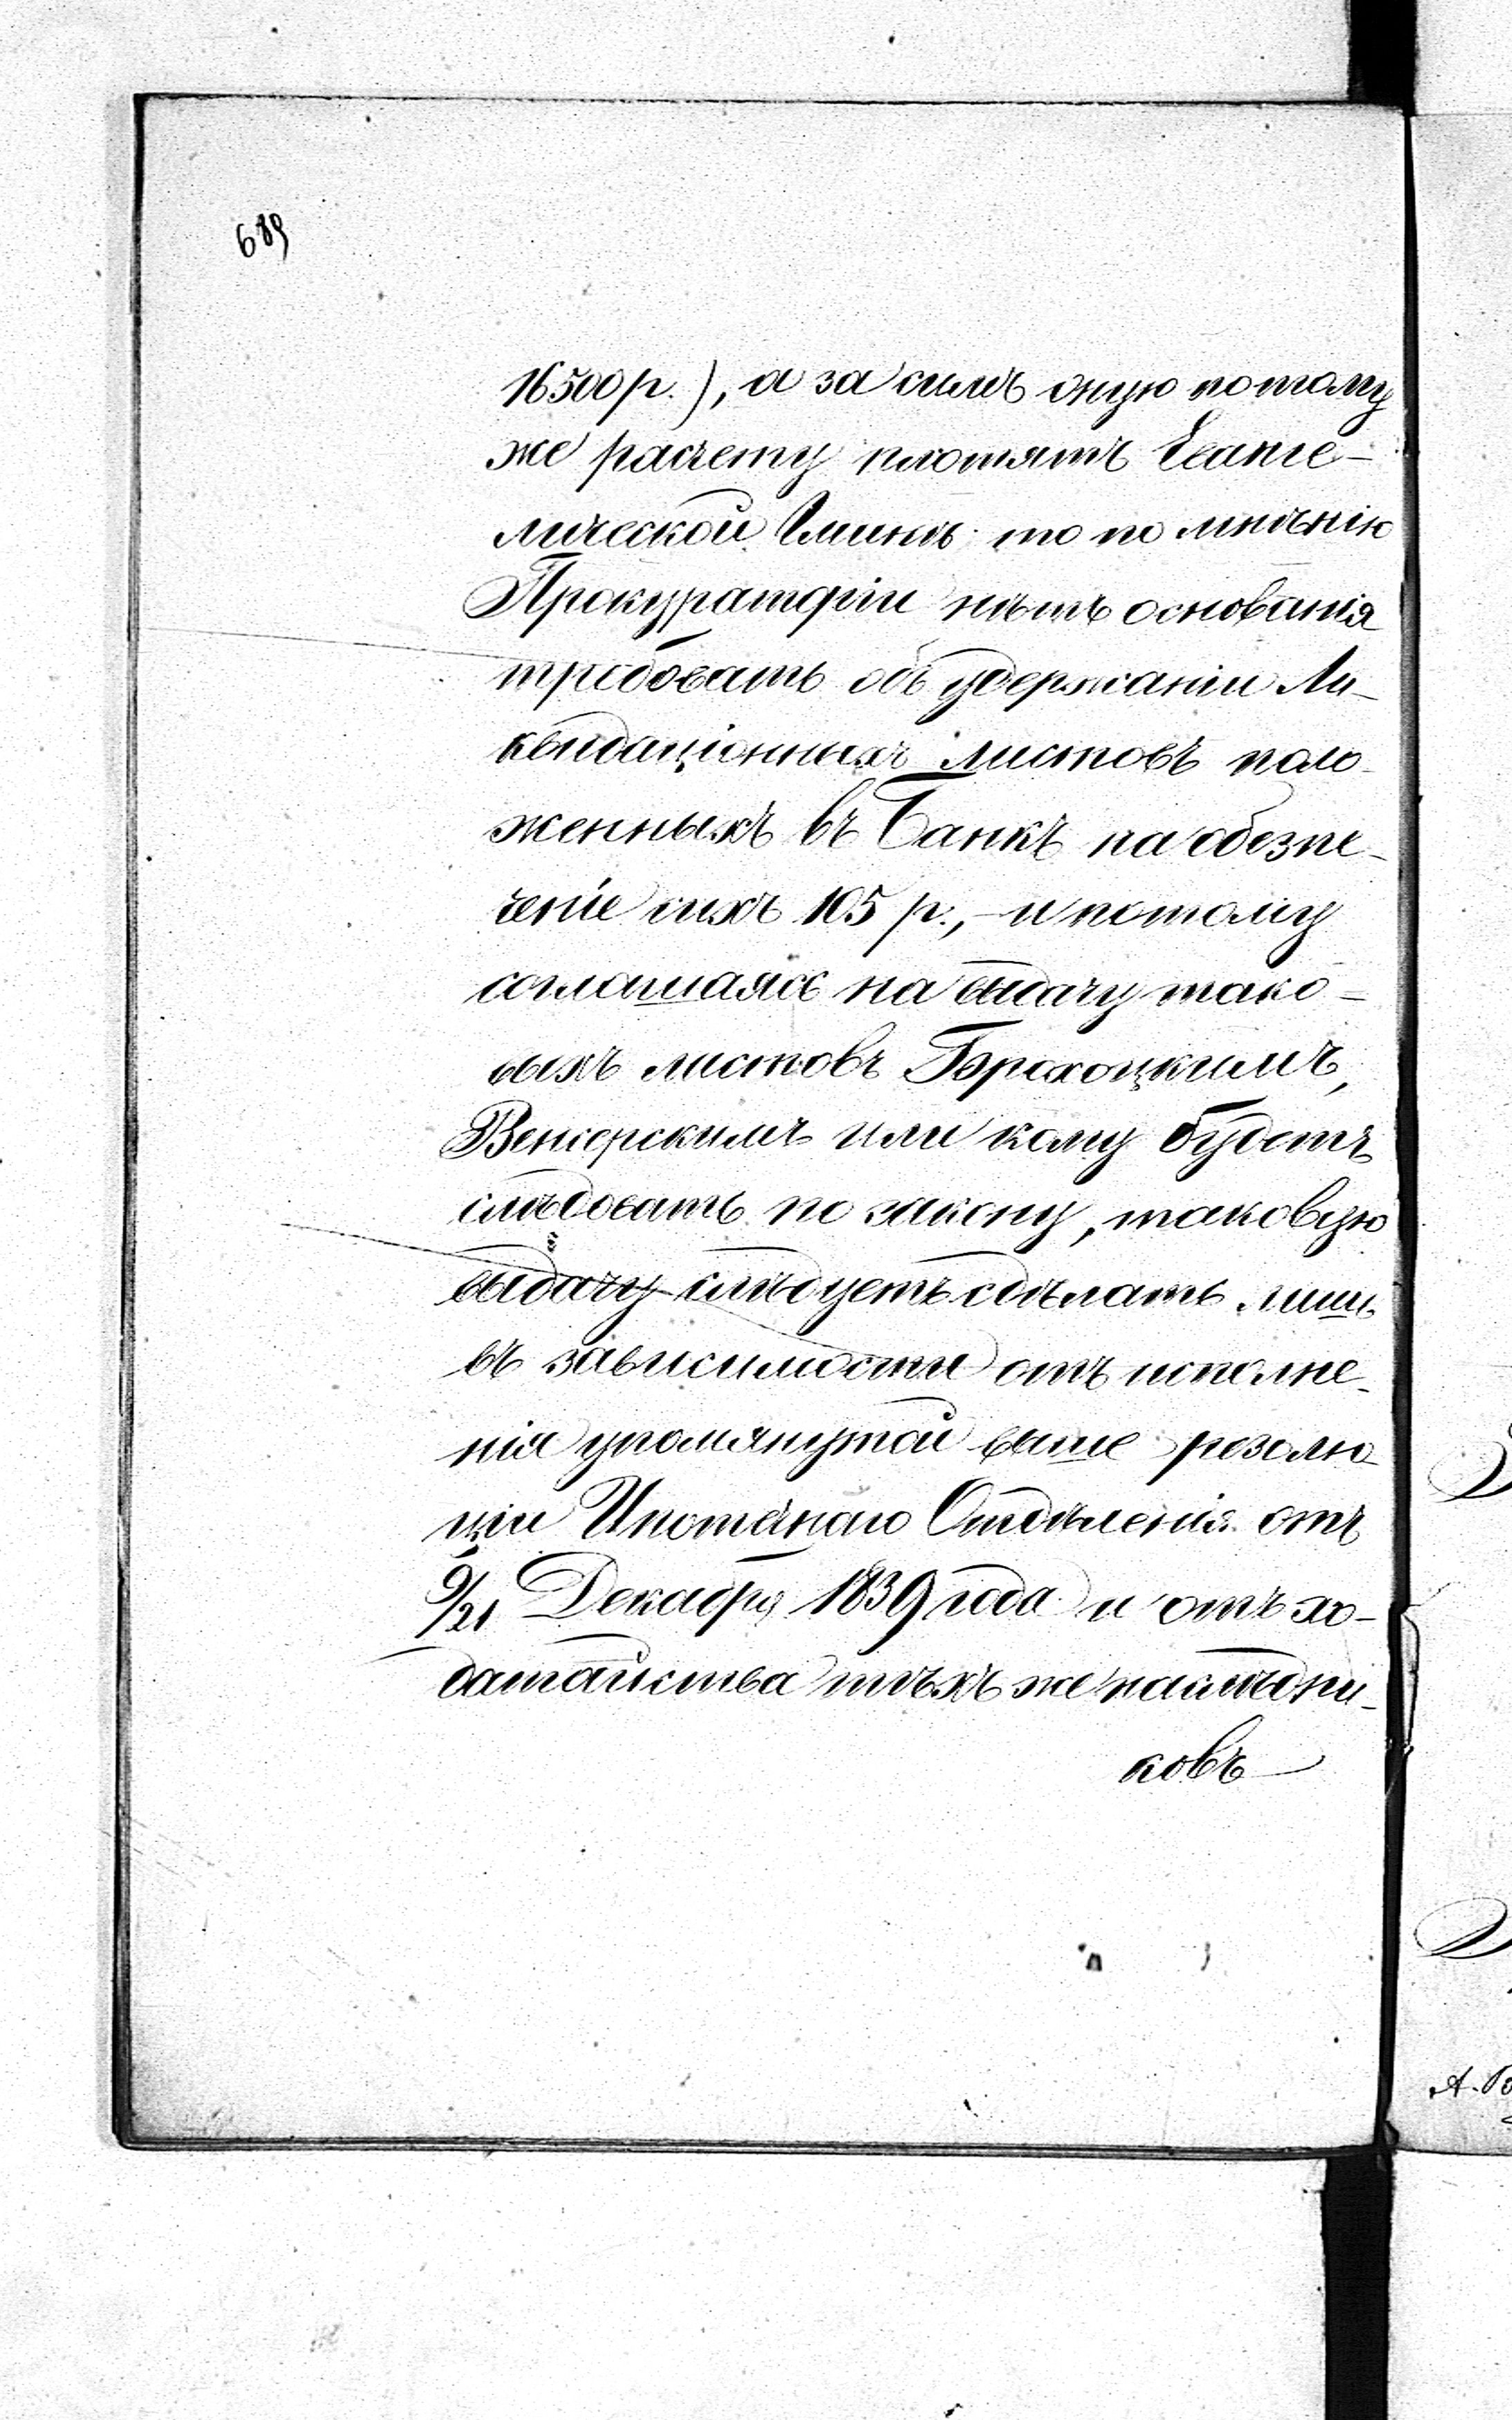 689
16500 р.), а за симъ оную по тому
же расчету платятъ Еванге-
лической Гминѣ; то по мнѣнію
Прокураторіи нѣтъ основанія
требовать объ удержаніи Ли-
квидаціонныхъ листовъ поло-
женныхъ въ Банкъ на обезпе-
ченіе сихъ 105 р., – и потому
соглашаясь на выдачу тако-
выхъ листовъ Брохоцкимъ,
Венгерскимъ или кому будетъ
слѣдовать по закону, таковую
выдачу слѣдуетъ сдѣлать лишь
въ зависимости отъ исполне-
нія упомянутой выше резолю-
ціи Ипотечнаго Отдѣленія отъ
9/21 Декабря 1839 года и отъ хо-
датайства тѣхъ же наслѣдни-
ковъ